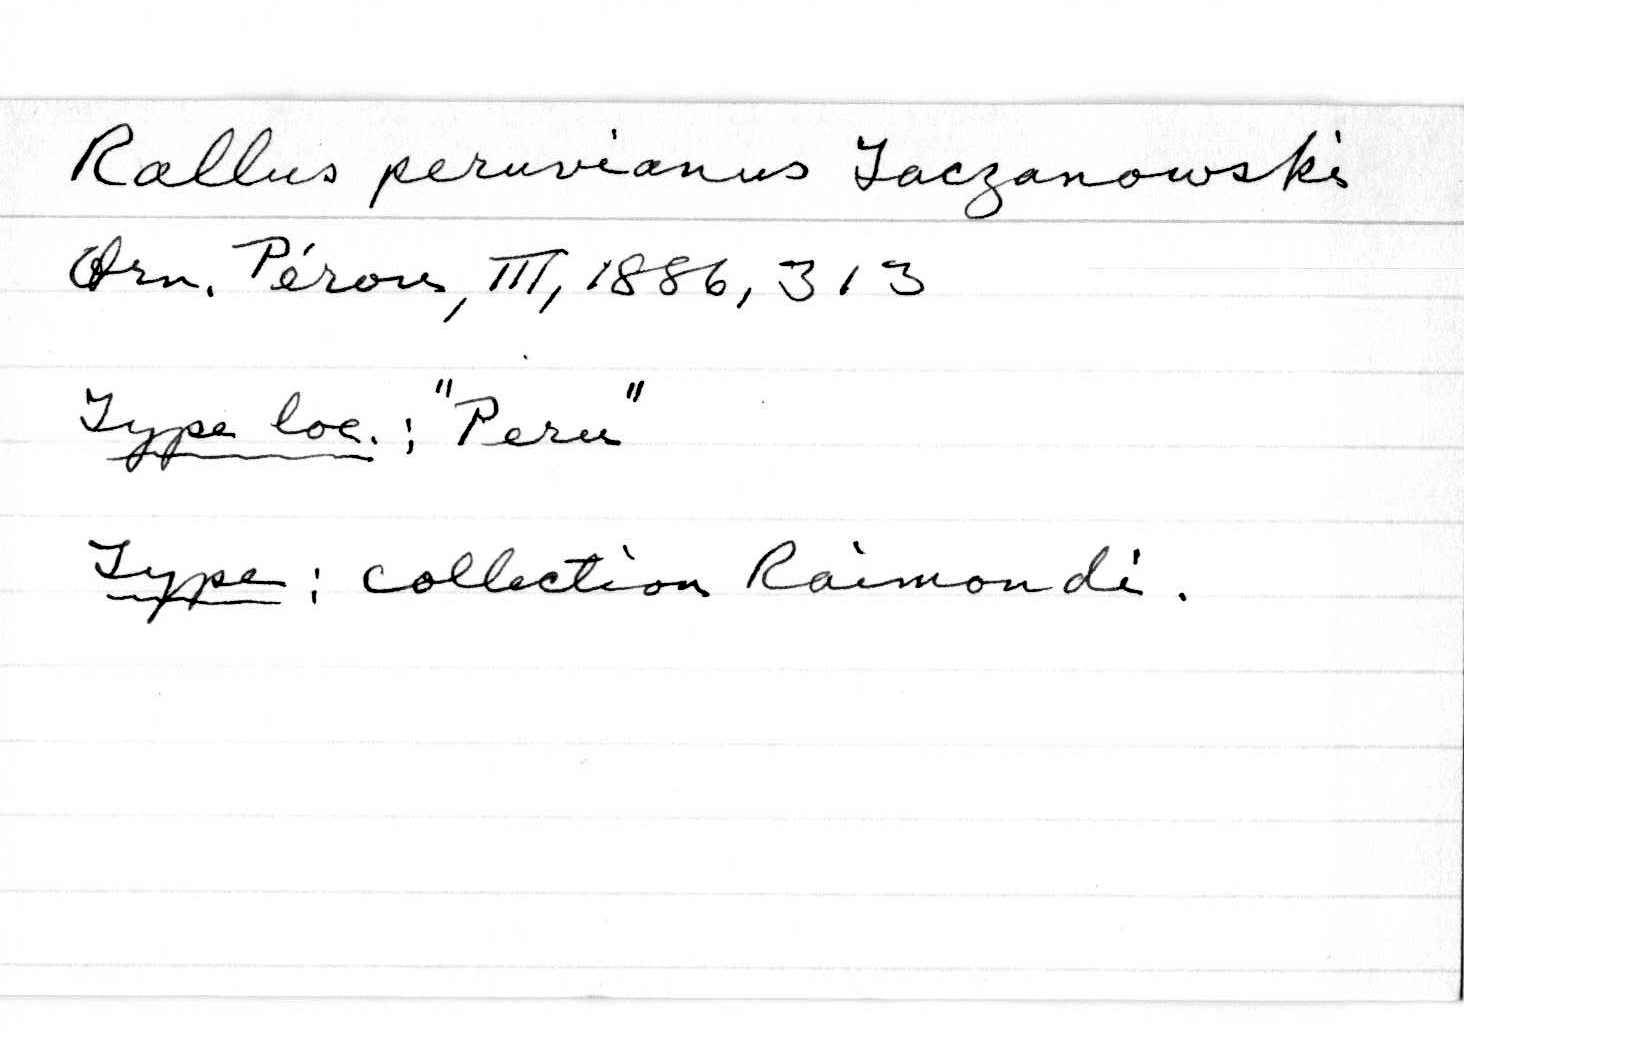 Rallus peruvianus Taczanowski
Orn. Pérou, III, 1886, 313
Type loc.: "Peru"
Type: collection Raimondi.